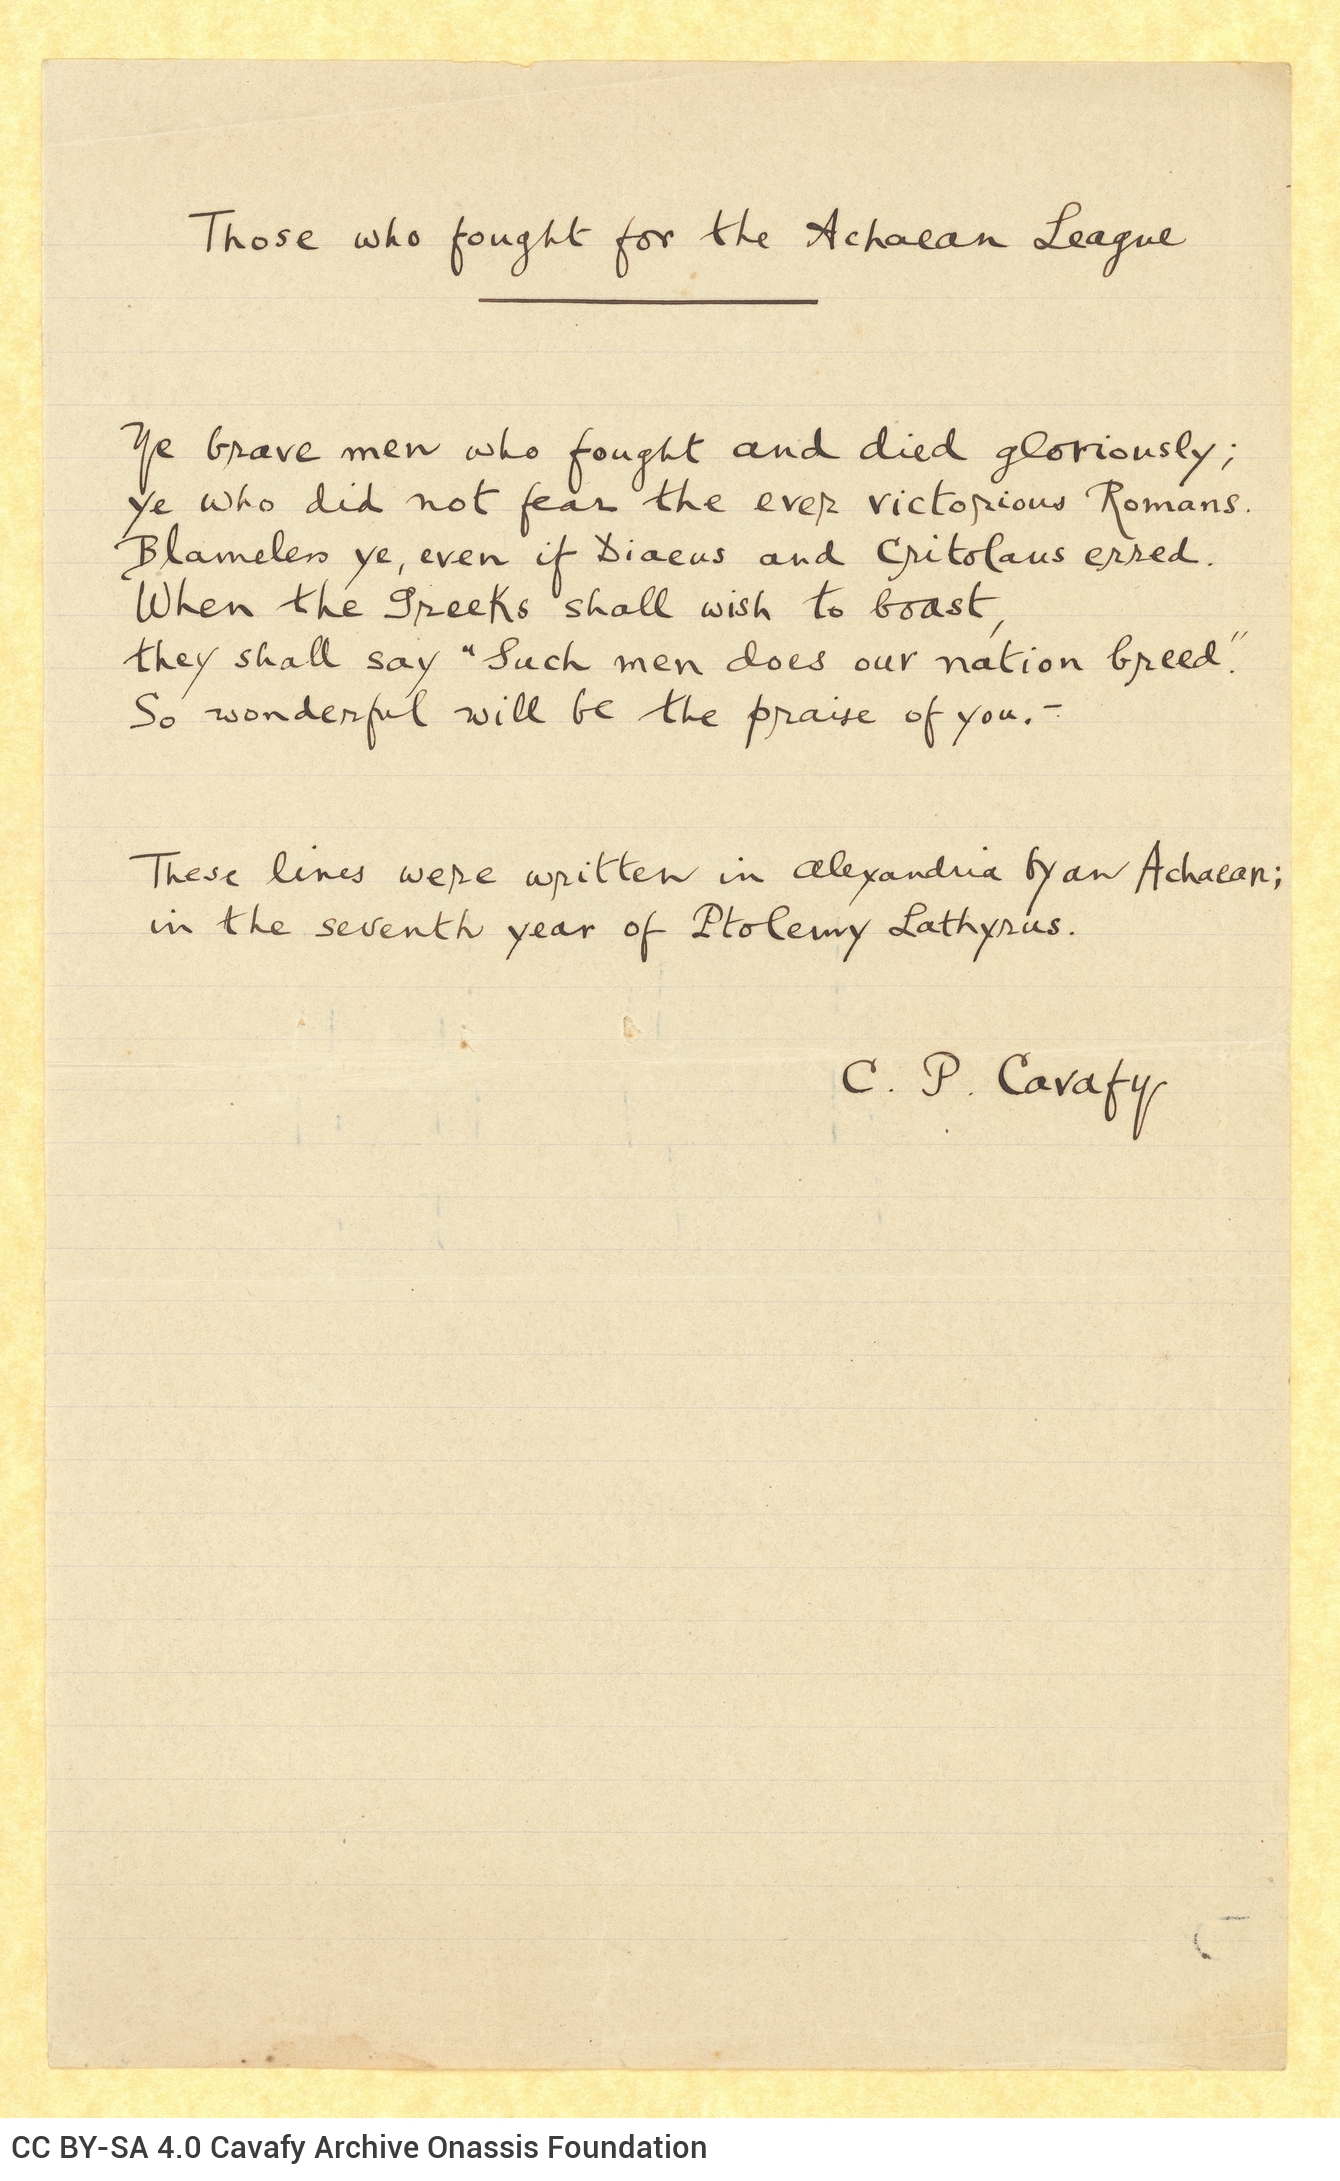 Those who fought for the Achaean League
Ye brave men who fought and died gloriously;
ye who did not fear the ever victorious Romans.
Blameless ye, even if Diaeus and Critolaus erred.
When the Greeks shall wish to boast,
they shall say "Such men does our nation breed".
So wonderful will be the praise of you.-
These lines were written in Alexandria by an Achaean;
in the seventh year of Ptolemy Lathyrus.
C. P. Cavafy
CC BY-SA 4.0 Cavafy Archive Onassis Foundation